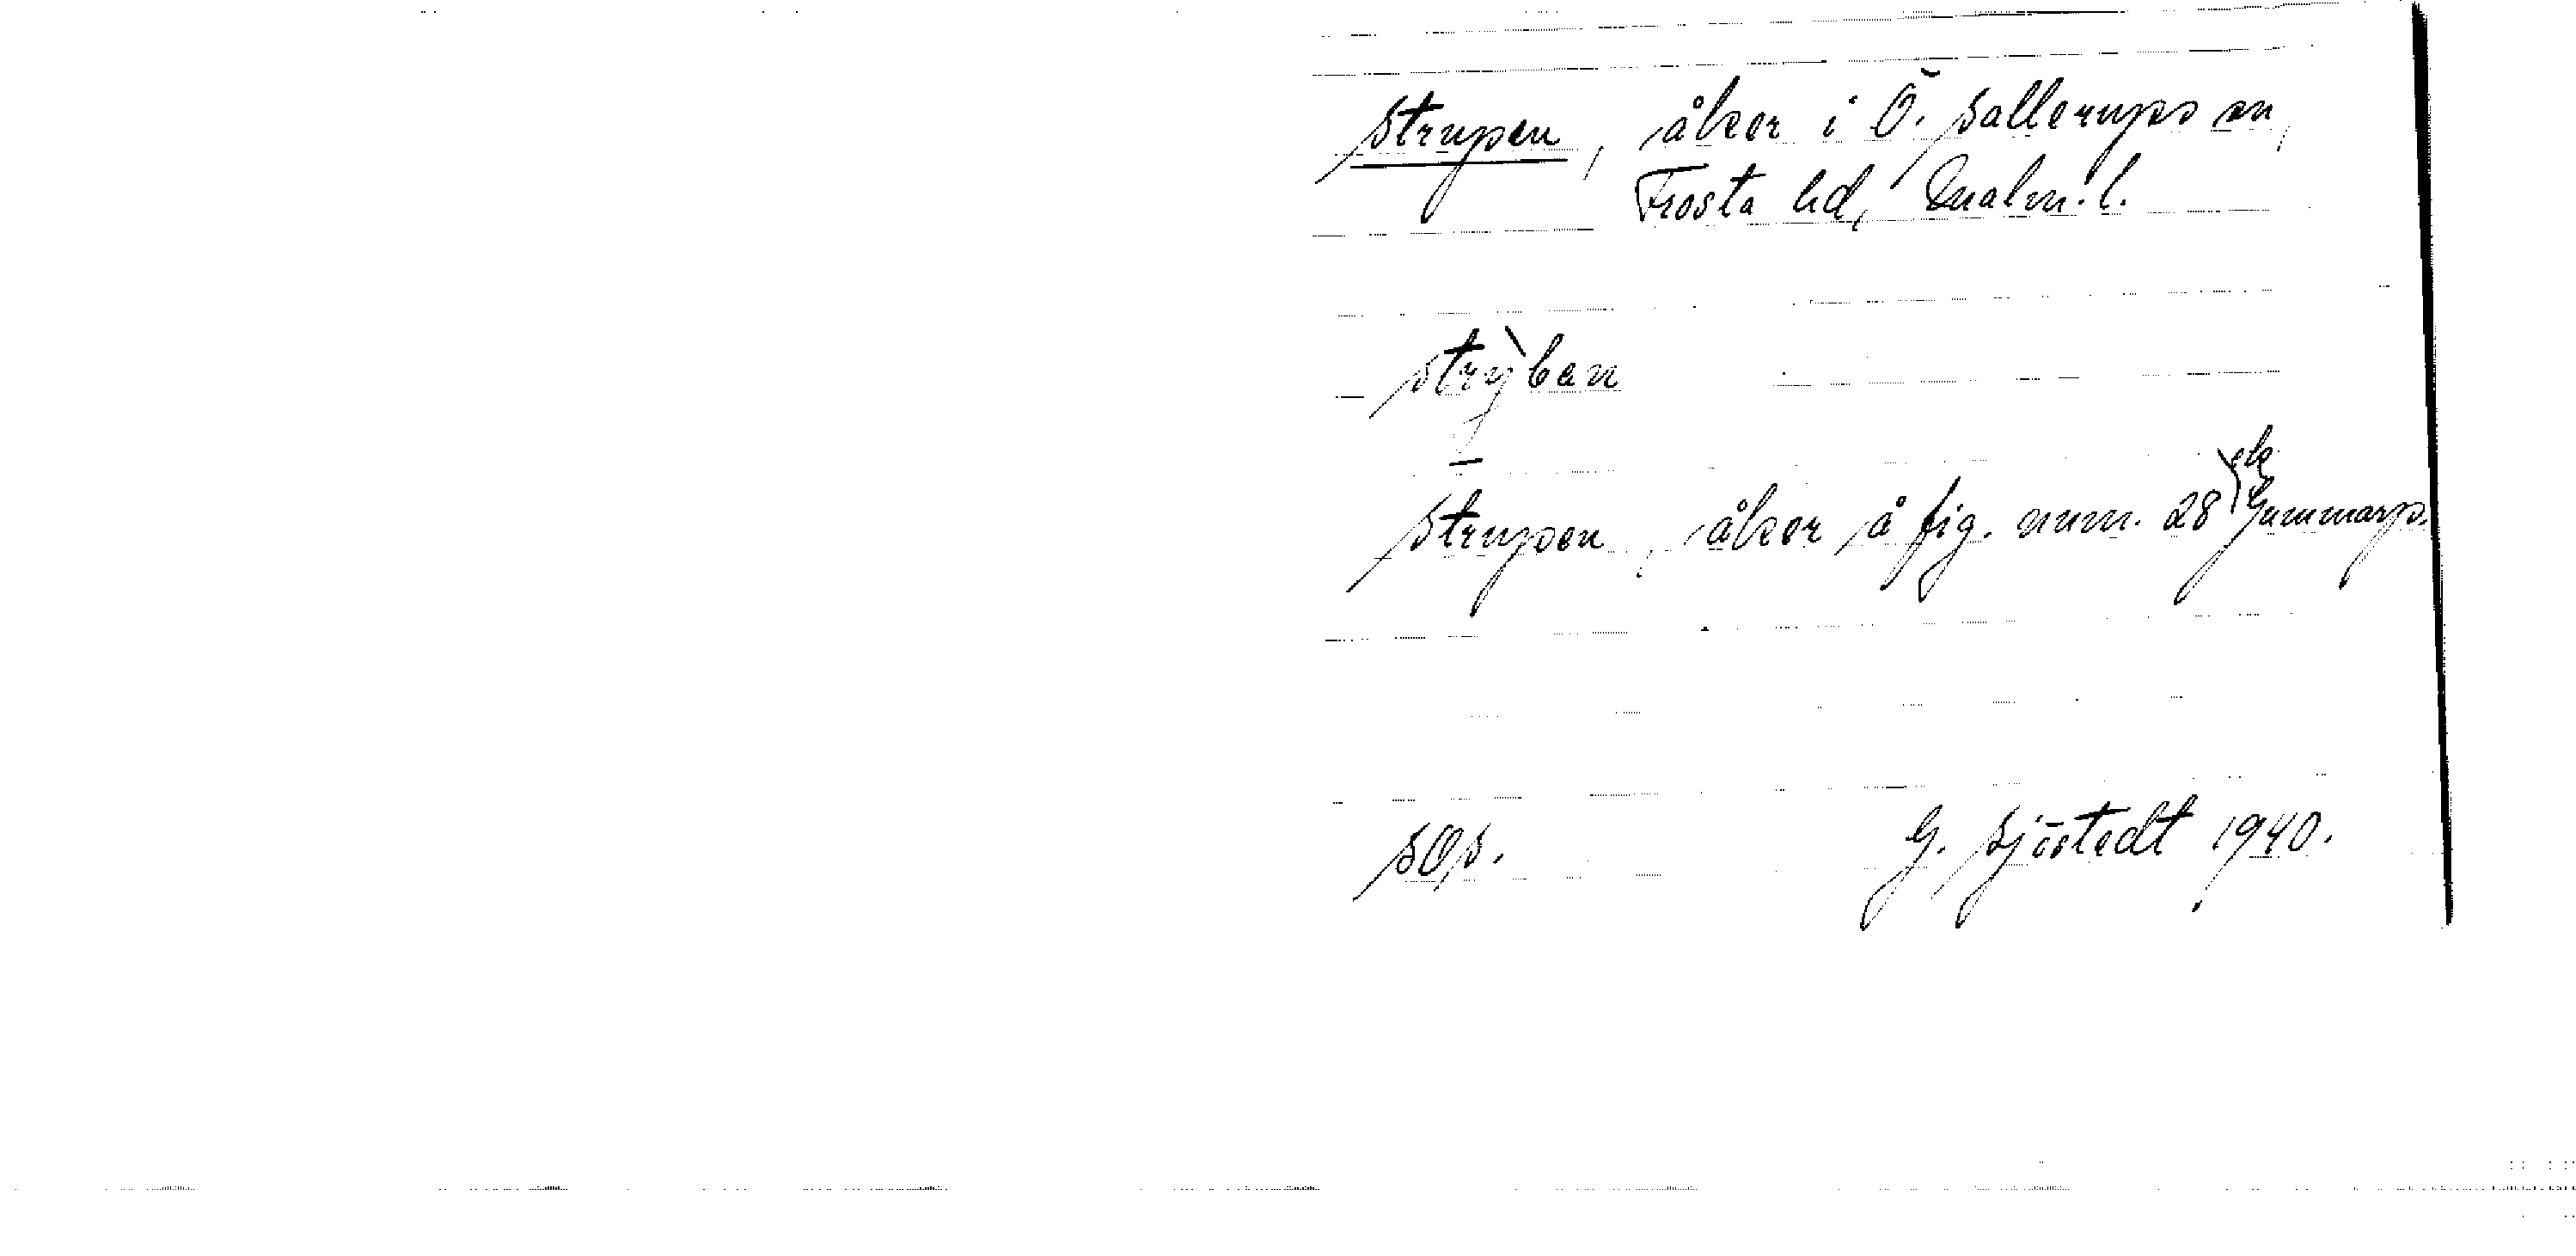 Strupen, åker i Ö. Sallerups sn,
Frosta hd, Malm. l.
strỳban
Strupen, åker å fig. num. 28 ek Gummarp.
SOS. G. Sjöstedt 1940.